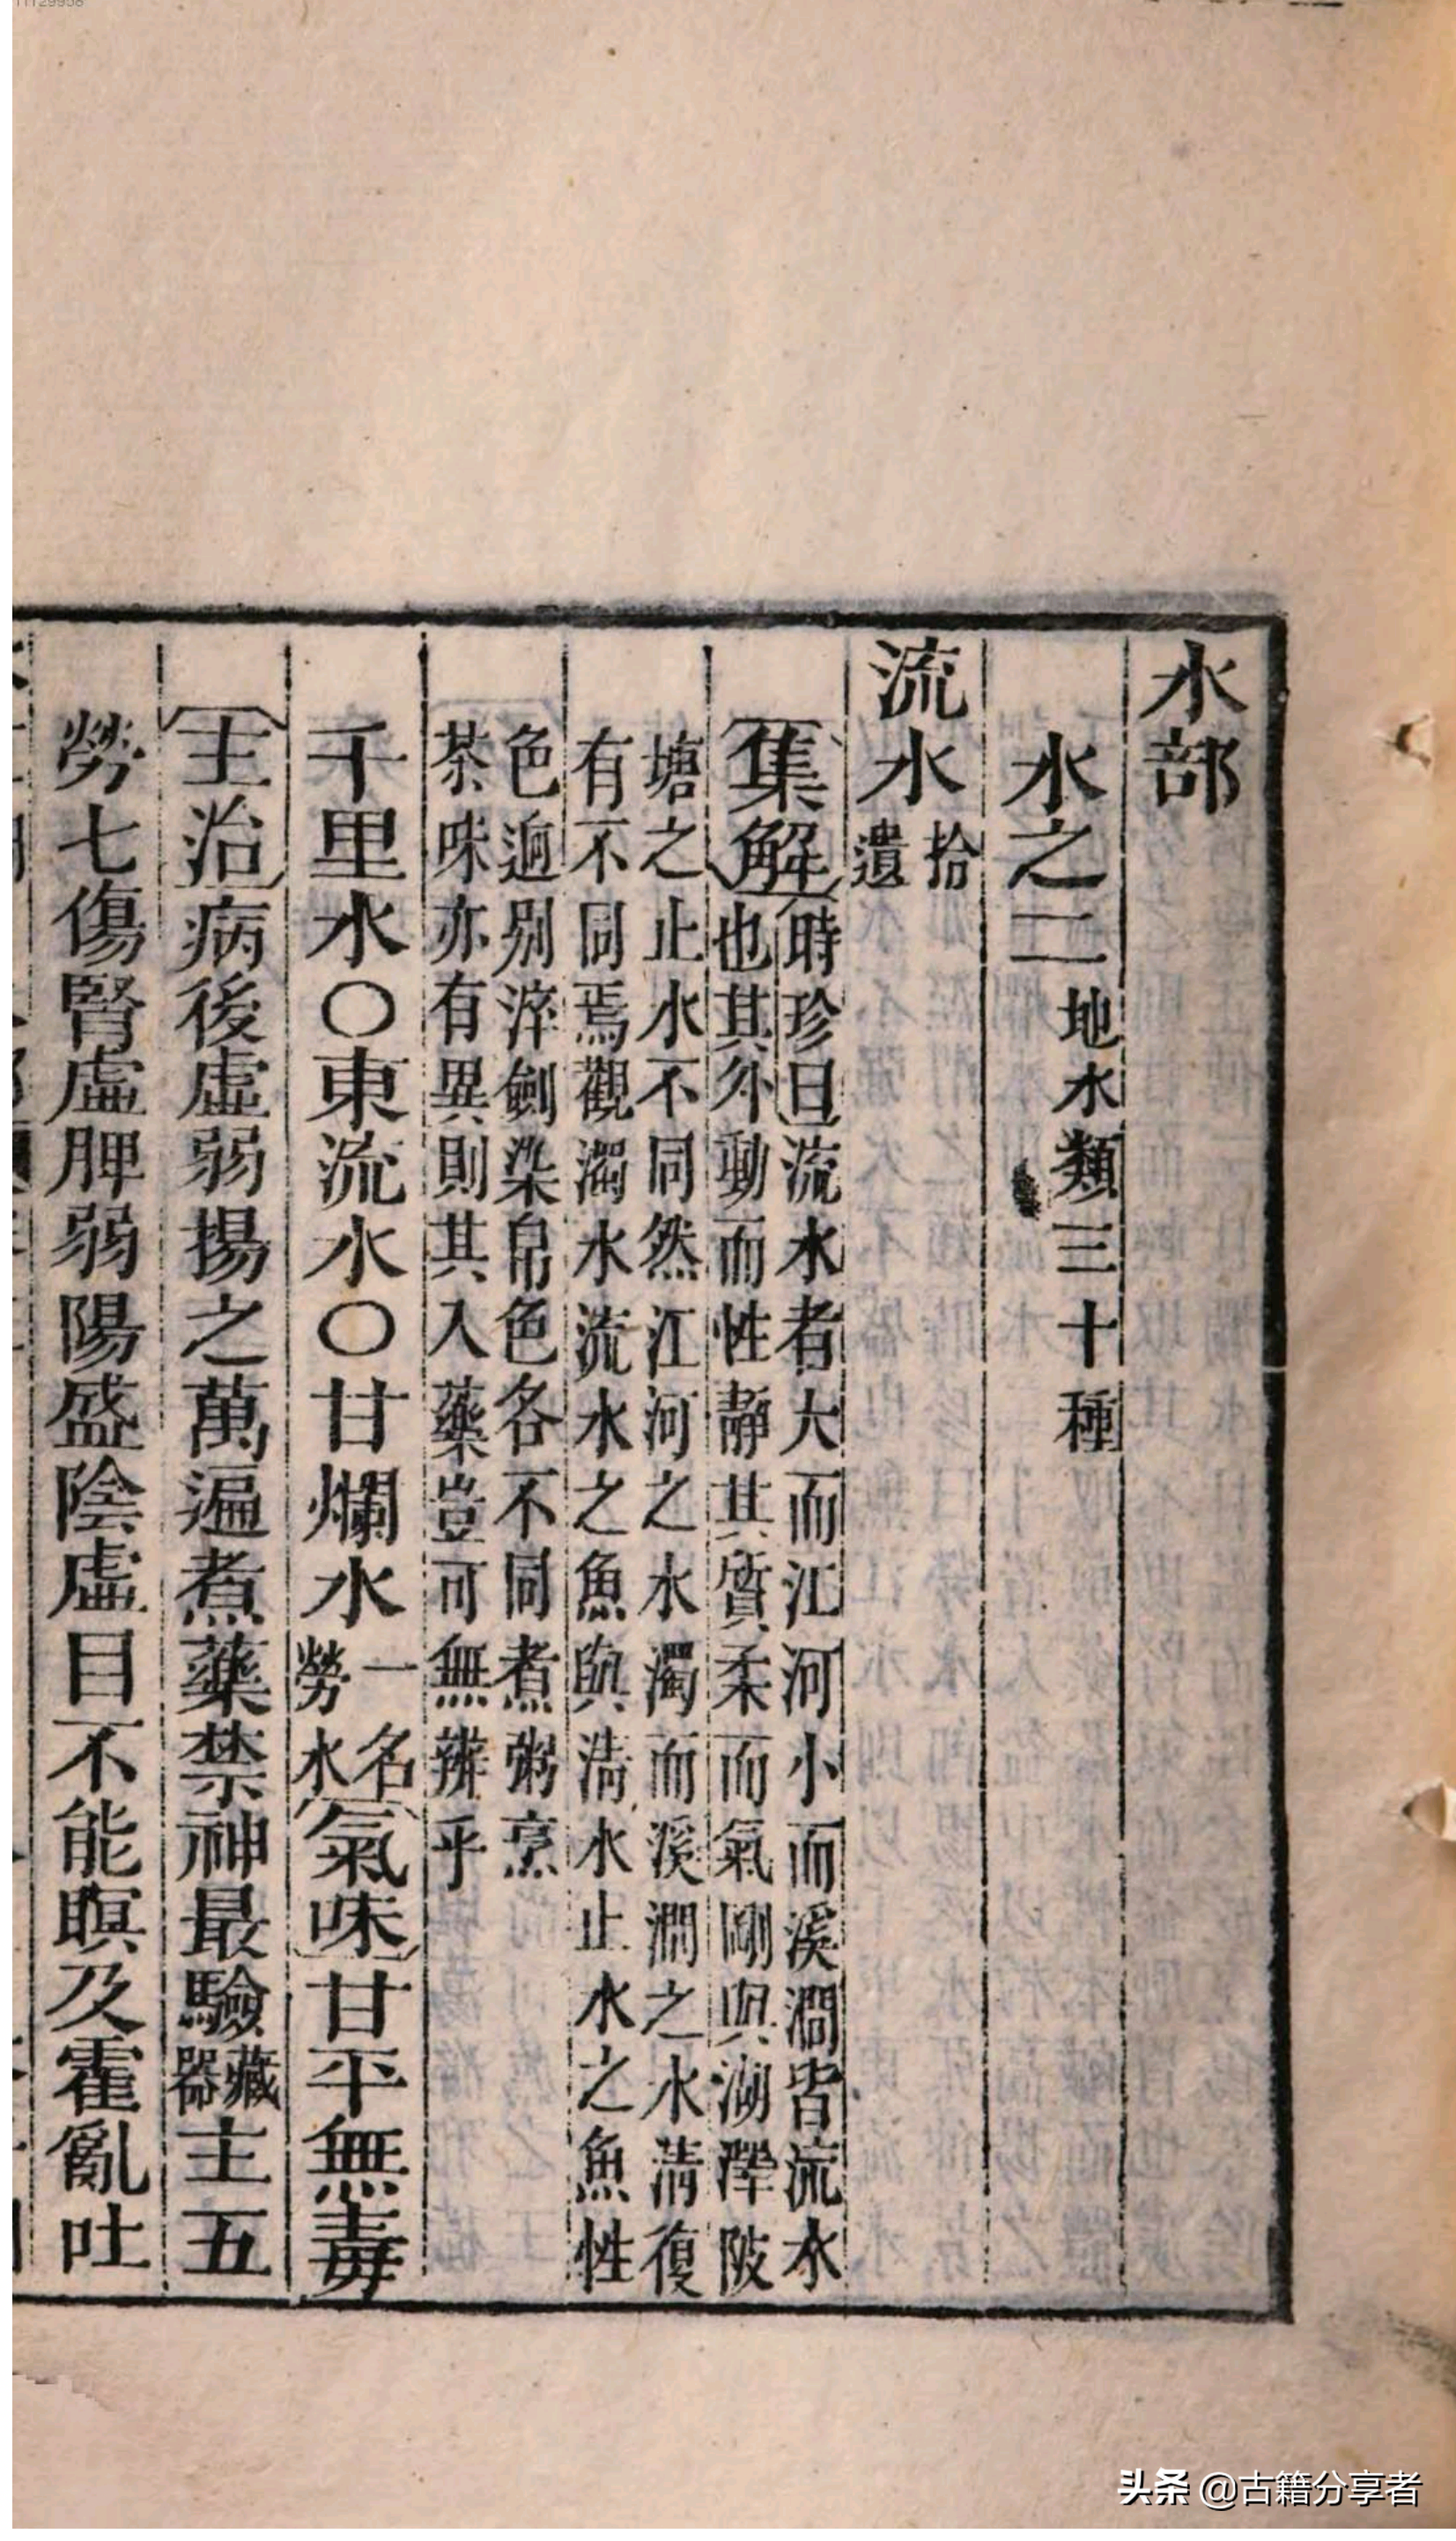 水部
水之二地水類三十種
流水拾遺
集解時珍曰流水者大而江河小而溪澗皆流水
也其外動而性靜其質柔而氣剛與湖澤陂
塘之止水不同然江河之水濁而溪澗之水清復
有不同焉觀濁水流水之魚與清水止水之魚性
色迥别淬劍染帛色各不同煮粥烹
茶味亦有異則其入藥豈可無辨乎
千里水〇東流水〇甘爛水一名勞水氣味甘平無毒
主治病後虛弱揚之萬遍煮藥禁神最驗藏器主五
勞七傷腎虛脾弱陽盛陰虛目不能瞑及霍亂吐
头条 @古籍分享者